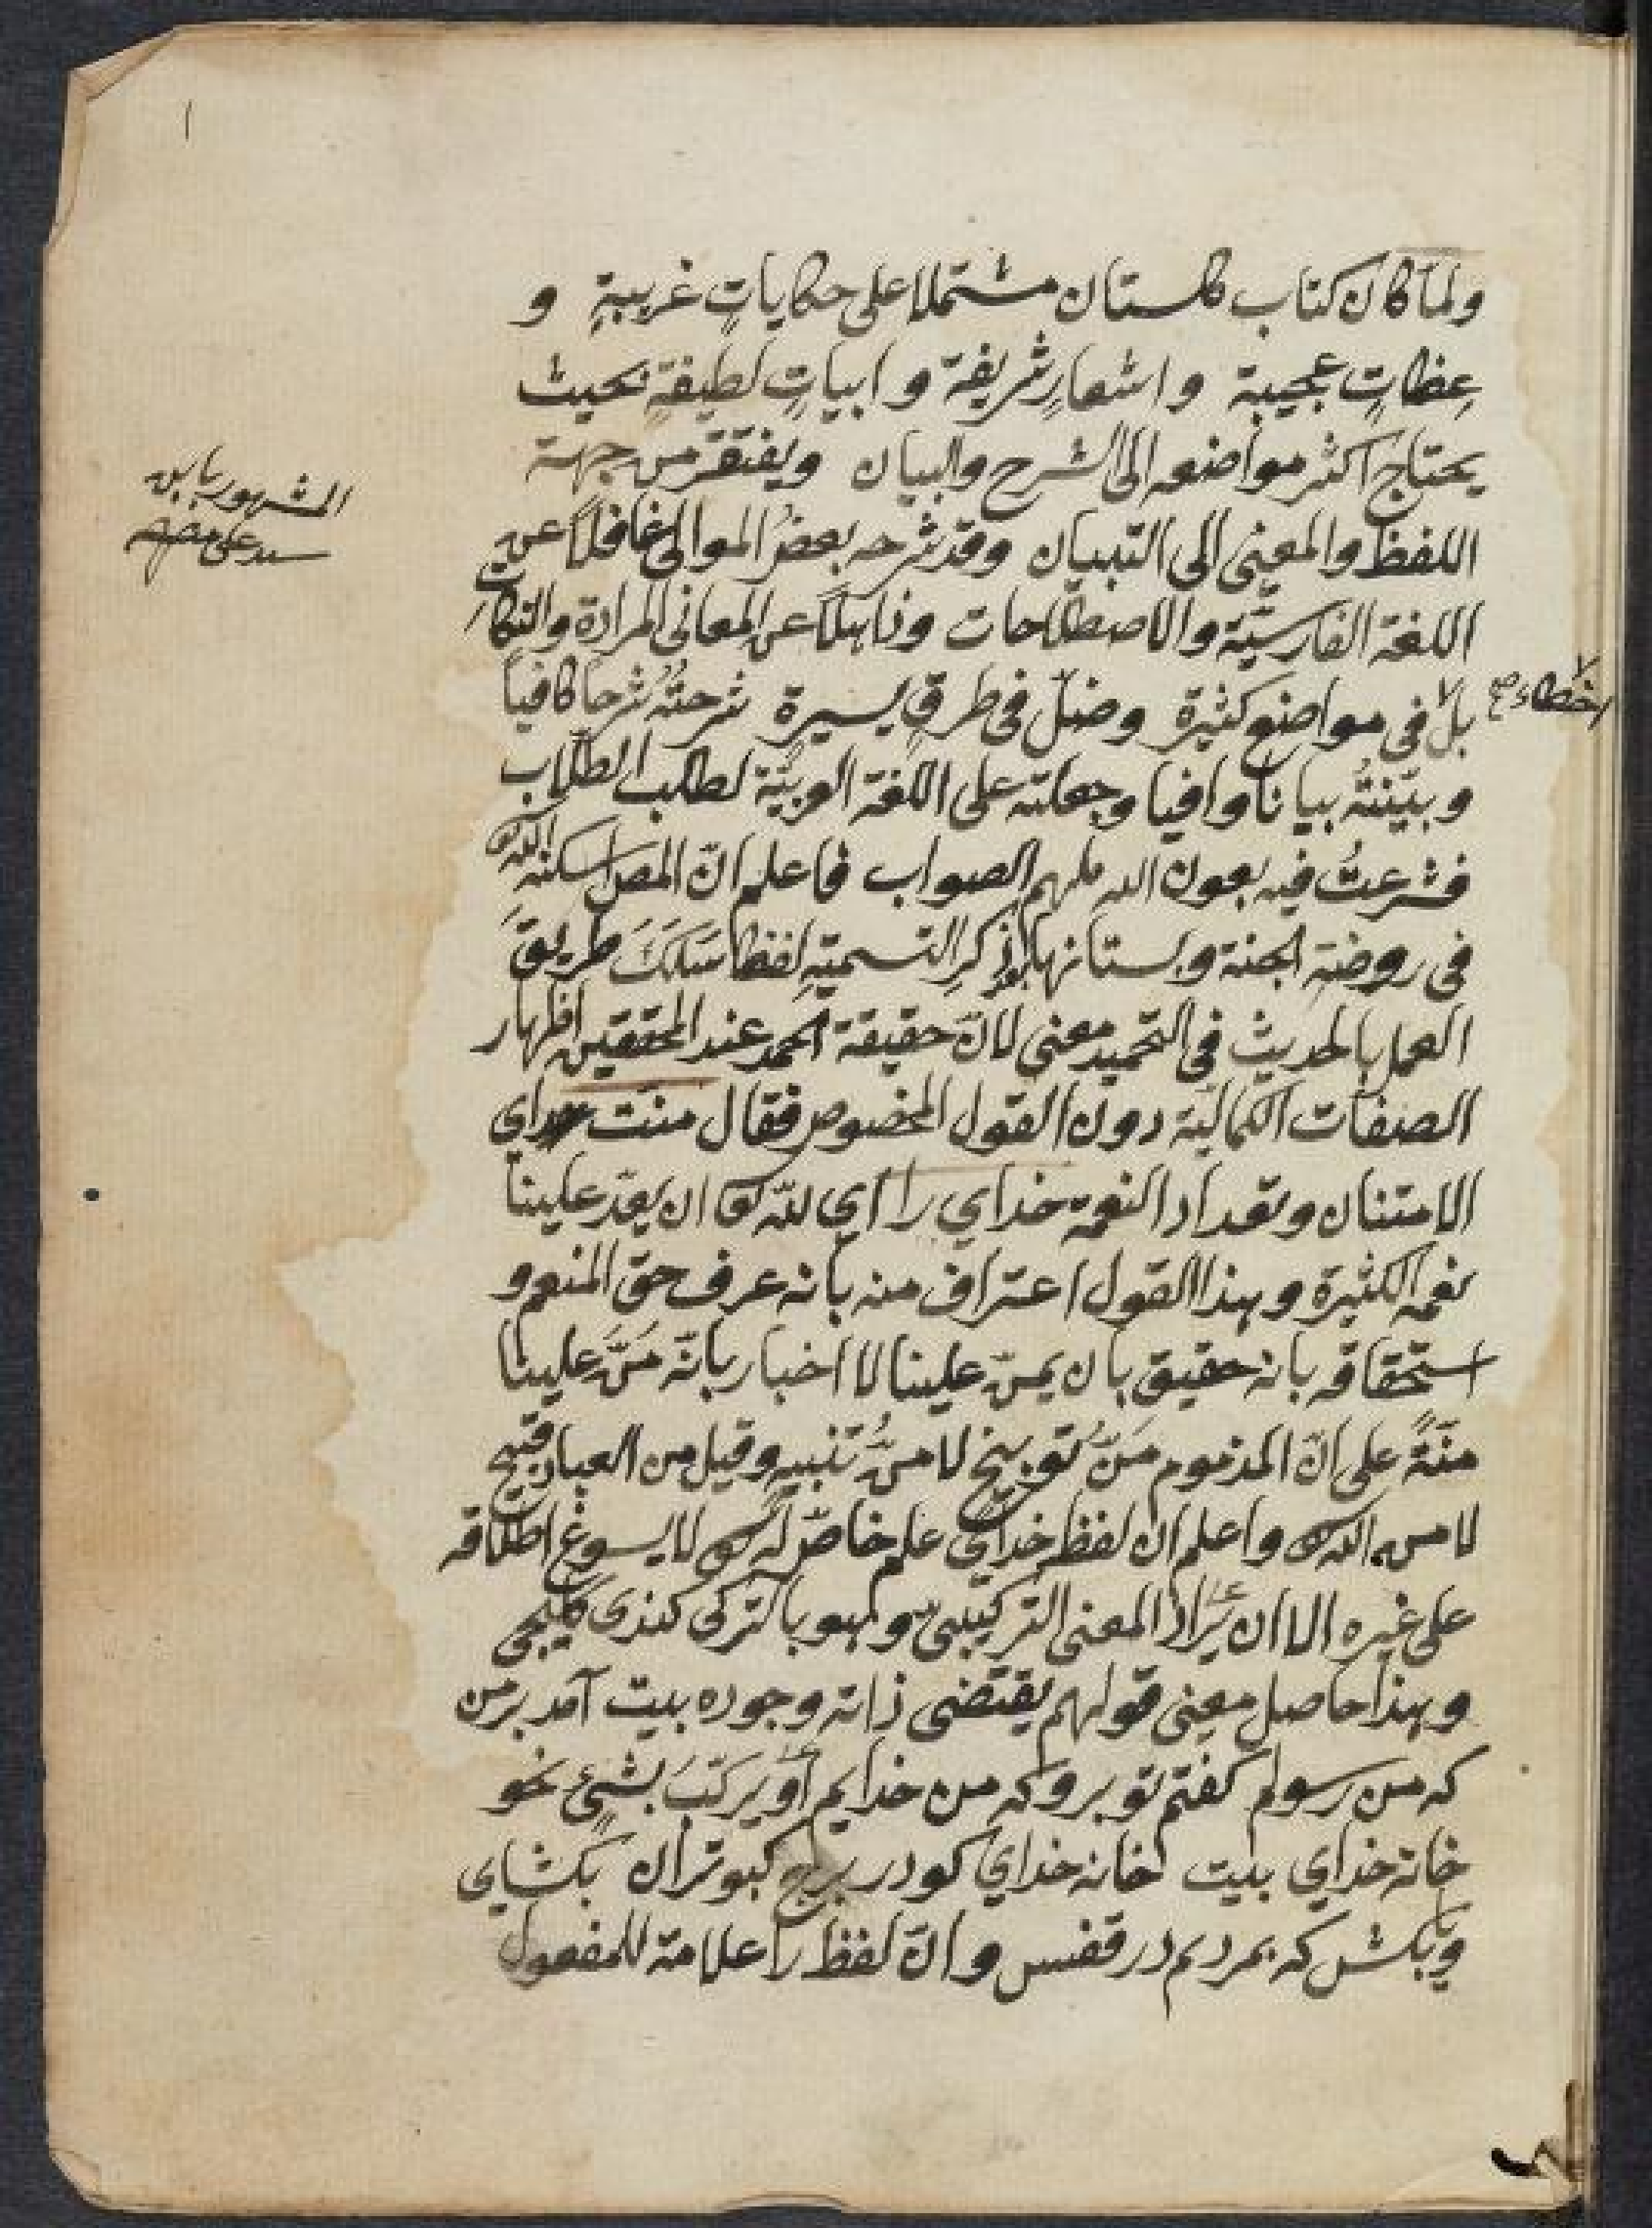 ١
ولما كان كتاب كلستان مشتملا على حكاياتٍ غريبةٍ و
عِظاتٍ عجيبة واشعارٍ شريفة وابياتٍ لطيفةٍ بحيث
يحتاج اكثر مواضعه الى الشرح والبيان ويفتقر من جهة
اللفظ والمعنى الى التبيان وقد شرحه بعضُ الموالى غافلًا عن
المشهور بابن
سيد على
اللغة الفارسيّة والاصطلاحات وذاهلًا عن المعانى المرادة والنكات
بل في مواضع كثيرة وضلّ فى طرقٍ يسيرة شرحتُهُ شرحا كافيا
اخطاء صح
وبيّنتُه بيانا وافيا وجعلته على اللغة العربيّة لطلب الطلّاب
فشرعتُ فيه بعون الله ملهم الصواب فاعلم انّ المص اسكنه الله
فى روضة الجنة وبستانها بذكرِ التسميةِ لفظا سَلَكَ طريقَ
العمل بالحديث فى التحميد معنى لانّ حقيقة الحمد عند المحققين اظهار
الصفات الكماليّة دون القول المخصوص فقال منّت اى
الامتنان وتعداد النعمة خداي را اي لله تع ان يعدّ علينا
نعمه الكثيرة وهذا القول اعتراف منه بانه عرف حق المنعم و
استحقاقه بانه حقيق بان يمنّ علينا لا اخبار بانّه مَنَّ علينا
منّةً على انّ المذموم مَنُّ توبيخٍ لا منُّ تنبيهٍ وقيل من العباد قبيح
لا من الله تع واعلم ان لفظ خداي علم خاصّ له تع لا يسوغ اطلاقه
على غيره الا ان يُراد المعنى التركيبىّ وهو بالتركى كندى كليجى
وهذا حاصل معنى قولهم يقتضى ذاته وجوده بيت آمد بر من
كه من رسولم كفتم تو برو كه من خدايم او يركّبَ بشيءٍ نحو
خانه خداي بيت خانه خداي كو در برج كبوتران بكشاى
ويا بكش كه بمردم در قفس وانّ لفظ را علامة للمفعول